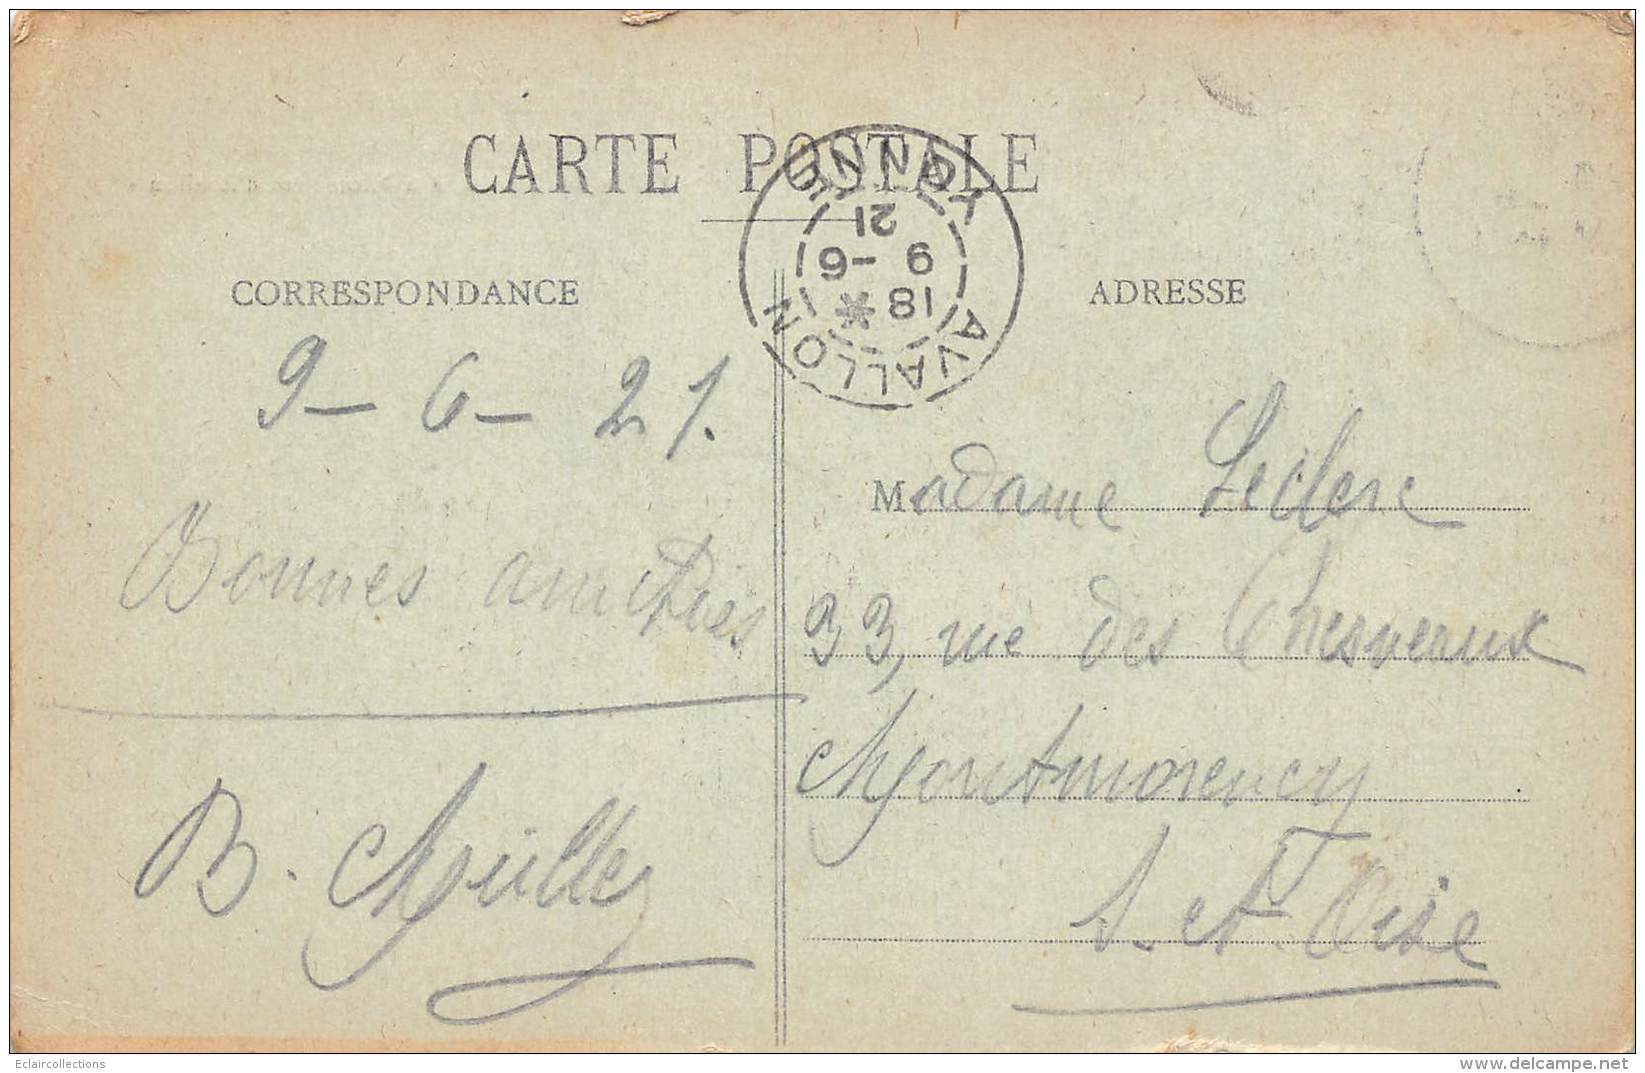 CARTE POSTALE
CORRESPONDANCE
ADRESSE
AVALLON
18 *
9 -6
21
9 - 6 - 21.
Bonnes amitiés
B.
Madame Leclerc
33, rue des Chesneaux
Montmorency
S. et Oise
Eclaircollections
www.delcampe.net